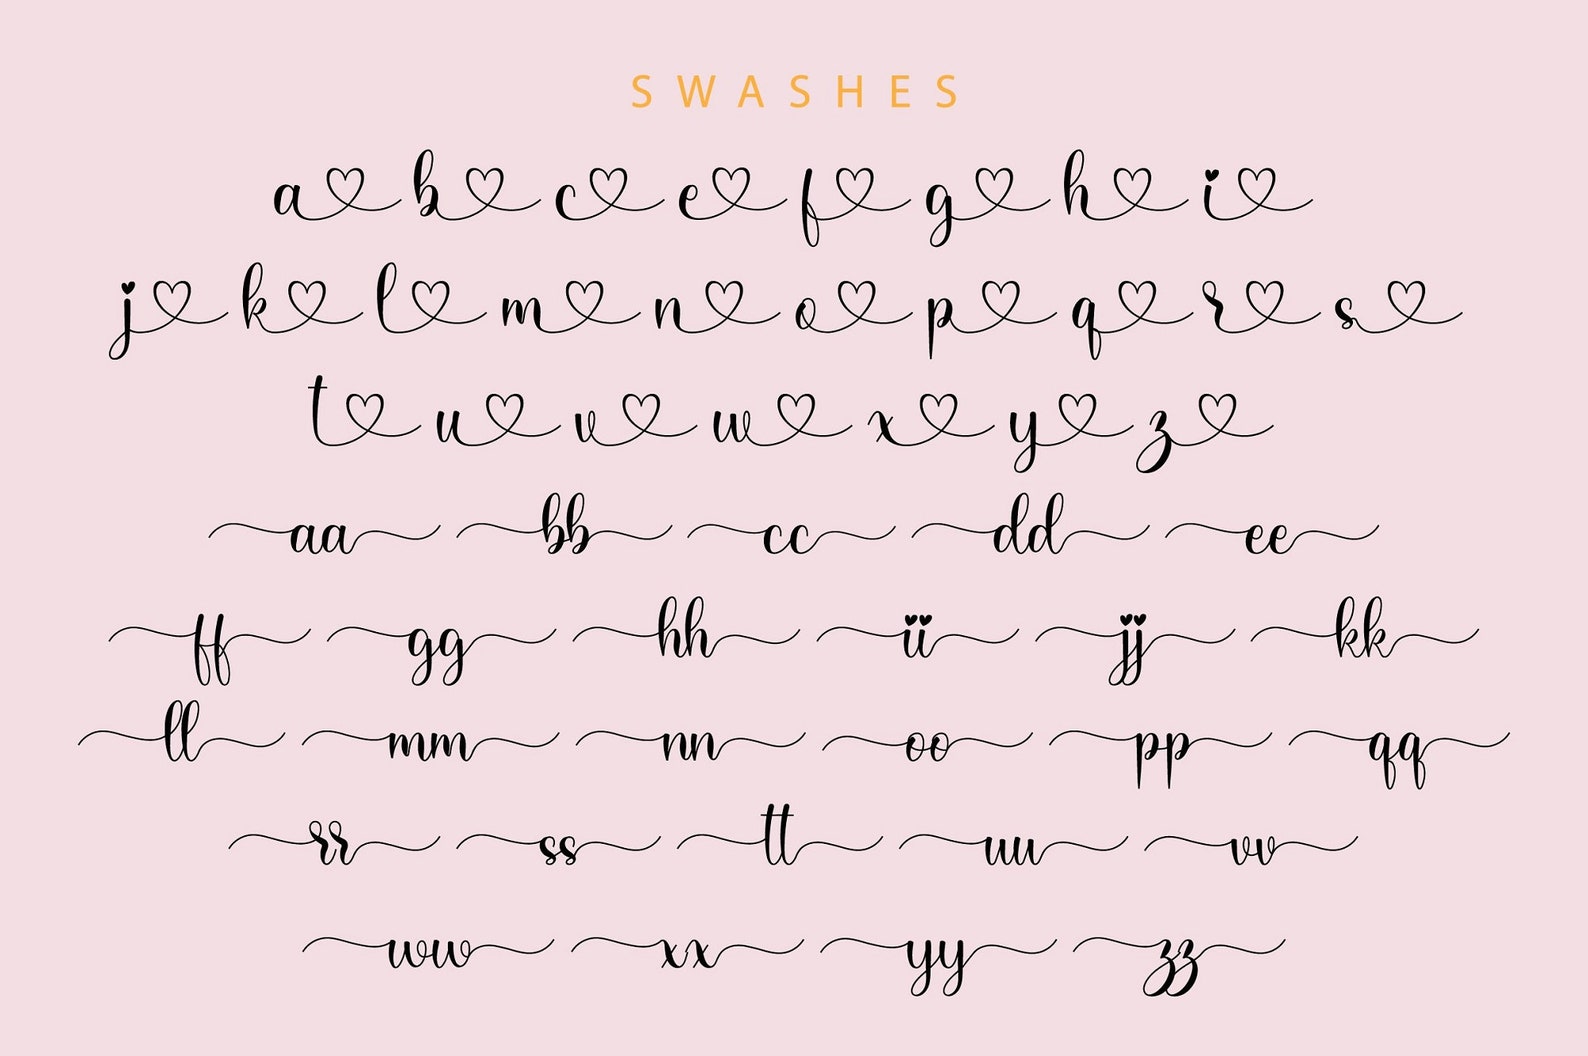 SWASHES
a b c e f g h i
j k l m n o p q r s
t u v w x y z
aa bb cc dd ee
ff gg hh ii jj kk
ll mm nn oo pp qq
rr ss tt uu vv
ww xx yy zz